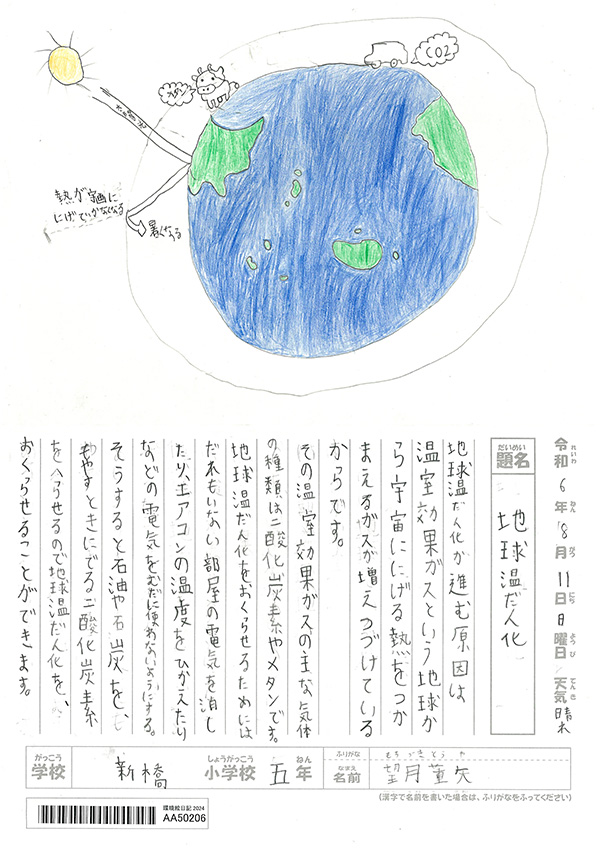 メタン
CO2
熱が宇宙に
にげていかなくなる
暑くなる
令和6年8月11日日曜日 天気晴れ
れいわ ねん がつ にち ようび てんき
だいめい
題名
地球温だん化
地球温だん化が進む原因は
温室効果ガスという地球か
ら宇宙ににげる熱をつか
まえるガスが増えつづけている
からです。
その温室効果ガスの主な気体
の種類は二酸化炭素やメタンです。
地球温だん化をおくらせるためには
だれもいない部屋の電気を消し
たり、エアコンの温度をひかえたり
などの電気をむだに使わないようにする。
そうすると石油や石炭を、
もやすときにでる二酸化炭素
をへらせるので地球温だん化を、
おくらせることができます。
がっこう しょうがっこう ねん
学校 新橋 小学校 五年
ふりがな もちづきとうや
なまえ
名前 望月董矢
(漢字で名前を書いた場合は、ふりがなをふってください)
環境絵日記 2024
AA50206